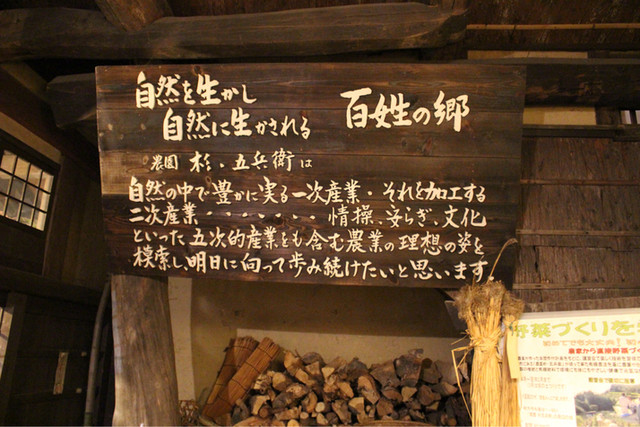 自然を生かし
自然に生かされる
百姓の郷
農園 杉・五兵衛は
自然の中で豊かに実る一次産業・それを加工する
二次産業・・・・・・・情操、安らぎ、文化
といった五次的産業をも含む農業の理想の姿を
模索し、明日に向って歩み続けたいと思います
野菜づくりを